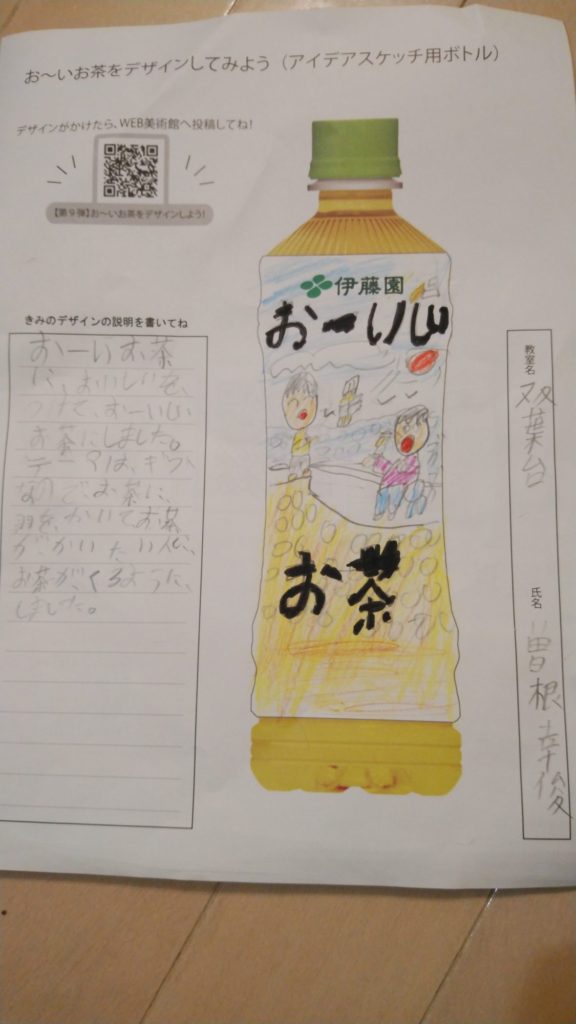 お～いお茶をデザインしてみよう（アイデアスケッチ用ボトル）
デザインがかけたら、WEB美術館へ投稿してね！
【第9弾】お～いお茶をデザインしよう！
きみのデザインの説明を書いてね
おーいお茶
に、おいしいを、
つけて、おーいしい
お茶にしました。
テーマは、ギフト
なのでお茶に、
羽をかいてお茶
がかいたい人に、
お茶がくるように、
しました。
伊藤園
おーいしい
お茶
教室名
双葉台
氏名
曽根幸俊